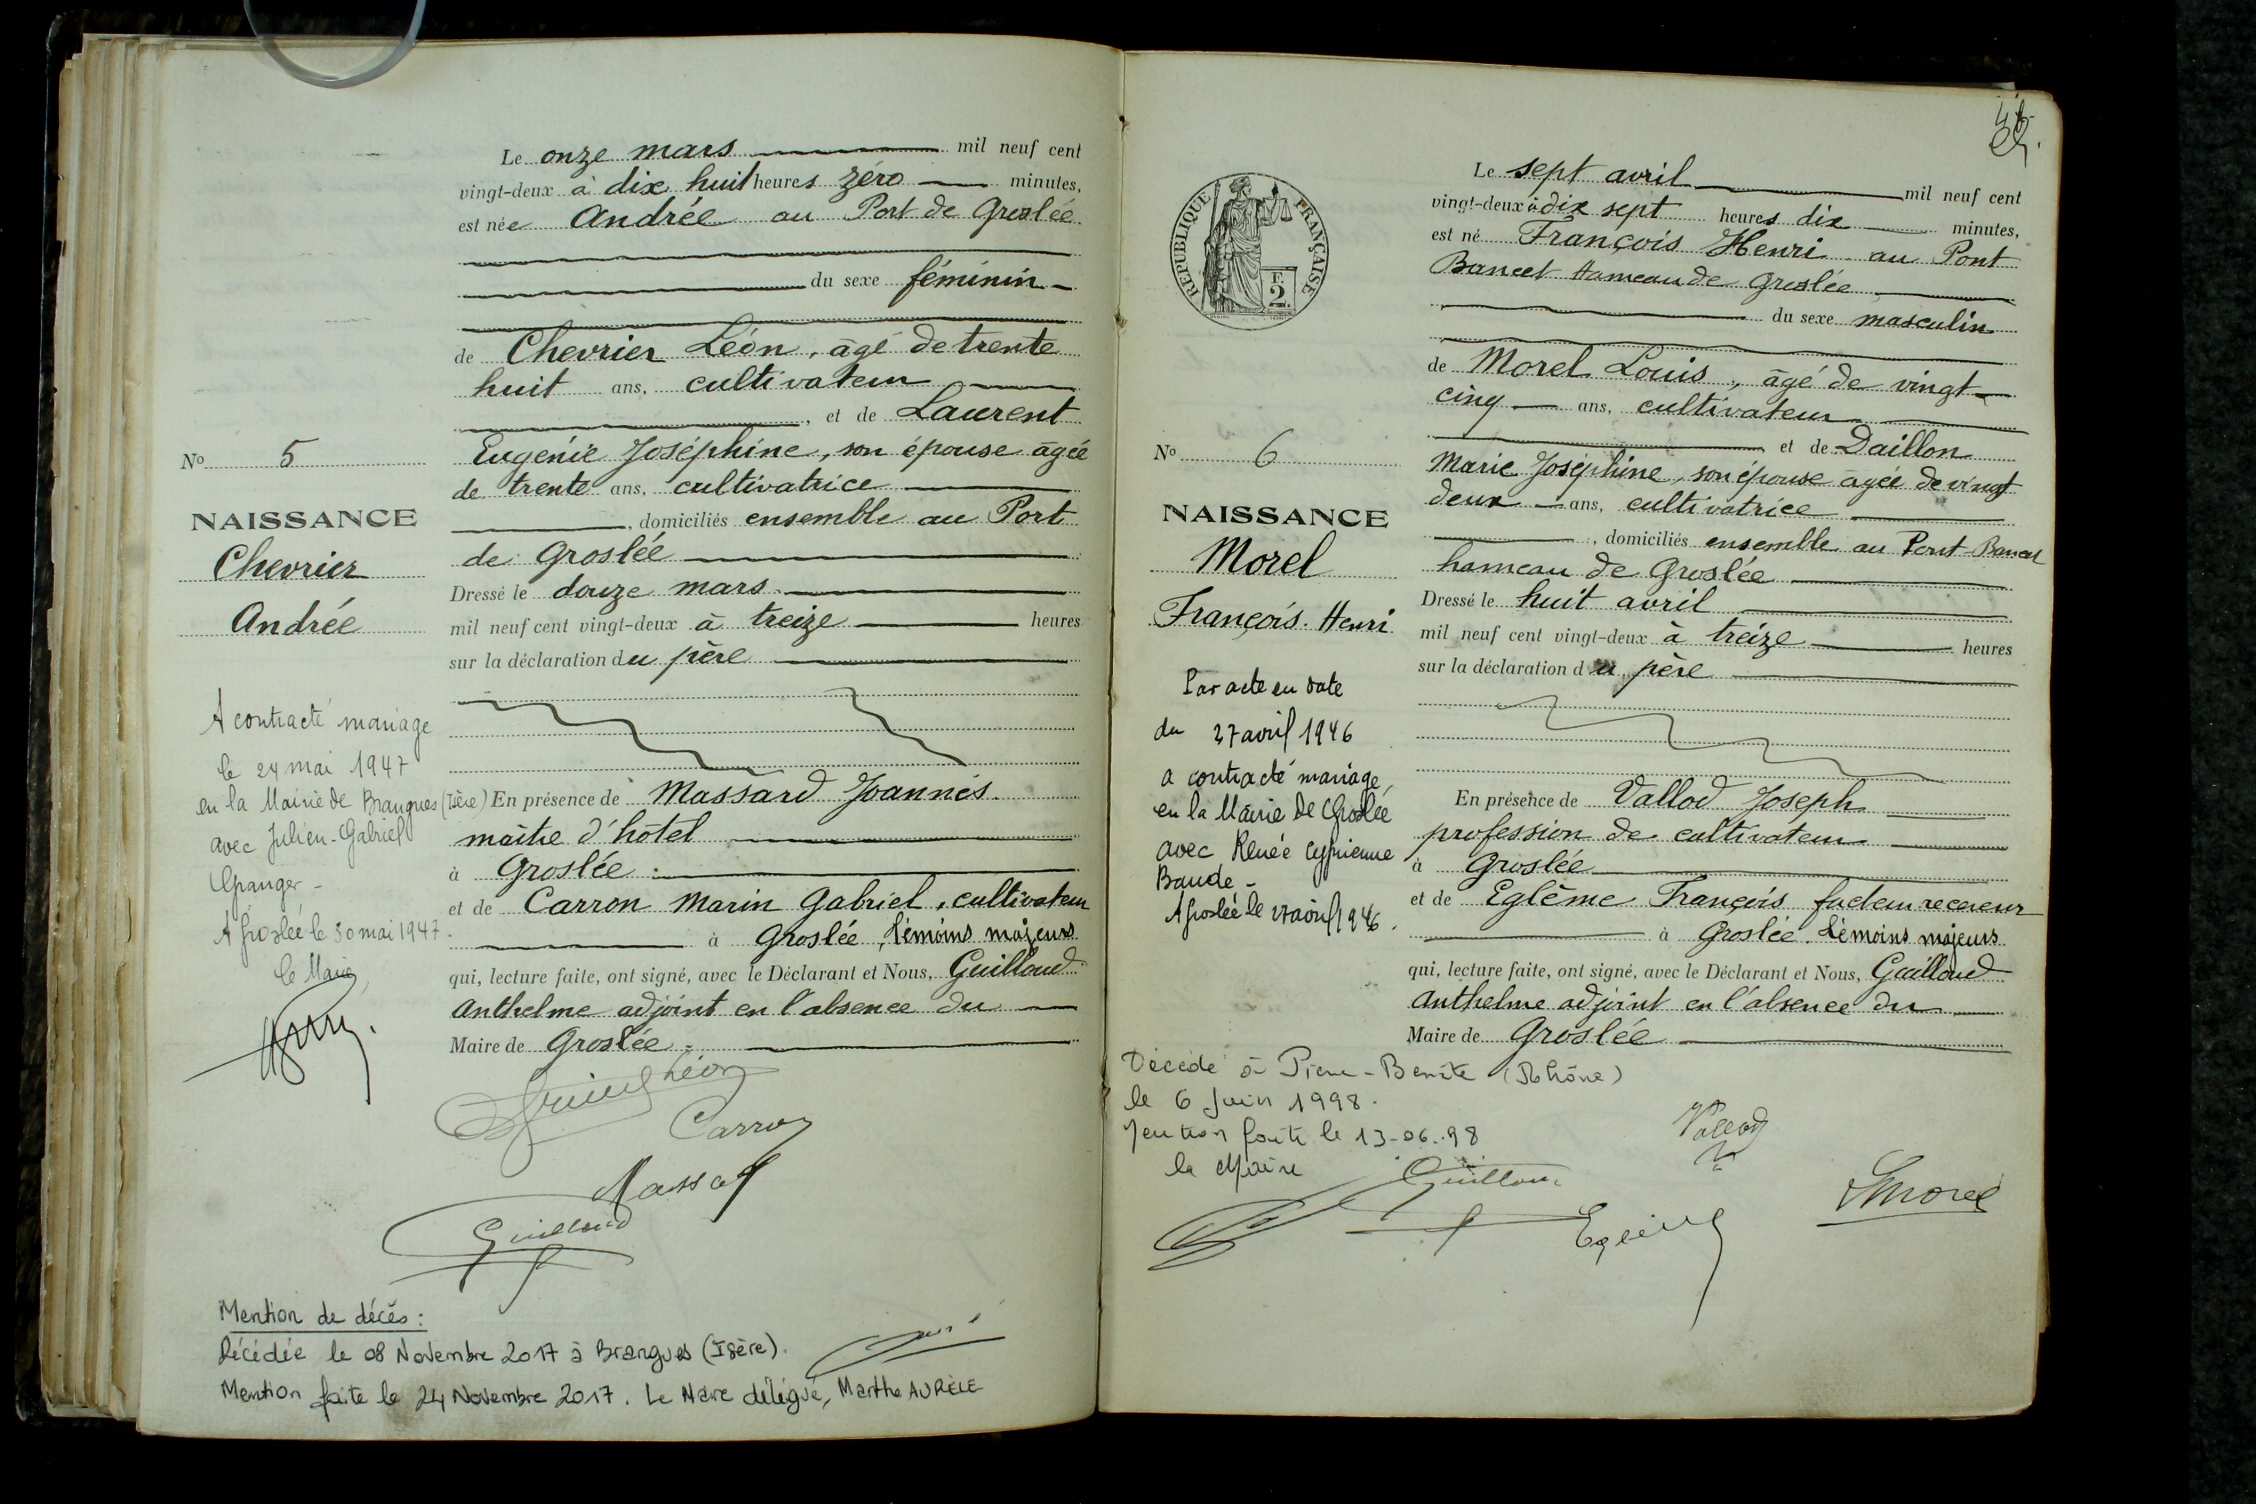 Le onze mars mil neuf cent
vingt-deux à dix huit heures zéro minutes,
est née Andrée au Port de Groslée
du sexe féminin
de Chevrier Léon, âgé de trente
huit ans, cultivateur
, et de Laurent
Eugénie Joséphine, son épouse âgée
de trente ans, cultivatrice
, domiciliés ensemble au Port
de Groslée
Dressé le douze mars
mil neuf cent vingt-deux à treize heures
sur la déclaration du père
En présence de Massard Joannès
maître d'hôtel
à Groslée
et de Carron Marin Gabriel, cultivateur
à Groslée, témoins majeurs
qui, lecture faite, ont signé, avec le Déclarant et Nous, Guilloud
Anthelme adjoint en l'absence du
Maire de Groslée
No 5
NAISSANCE
Chevrier
Andrée
A contracté mariage
le 24 mai 1947
en la Mairie de Brangues (Isère)
avec Julien-Gabriel
Granger
A Groslée le 30 mai 1947.
Le Maire,
Léon
Carron
Massard
Guilloud
Mention de décès :
Décédée le 08 Novembre 2017 à Brangues (Isère).
Mention faite le 24 Novembre 2017. Le Maire délégué, Marthe AURÈLE
RÉPUBLIQUE FRANÇAISE
2 F.
Le sept avril mil neuf cent
vingt-deux à dix sept heures dix minutes,
est né François Henri au Pont
Bancet Hameau de Groslée
du sexe masculin
de Morel Louis, âgé de vingt
cinq ans, cultivateur
et de Daillon
Marie Joséphine, son épouse âgée de vingt
deux ans, cultivatrice
, domiciliés ensemble au Pont Bancet
hameau de Groslée
Dressé le huit avril
mil neuf cent vingt-deux à treize heures
sur la déclaration du père
En présence de Vallod Joseph
profession de cultivateur
à Groslée
et de Eglème François facteur receveur
à Groslée. témoins majeurs
qui, lecture faite, ont signé, avec le Déclarant et Nous, Guilloud
Anthelme adjoint en l'absence du
Maire de Groslée
No 6
NAISSANCE
Morel
François-Henri
Par acte en date
du 27 avril 1946
a contracté mariage
en la Mairie de Groslée
avec Renée Cyprienne
Baude -
A Groslée le 27 avril 1946.
Décédé à Pierre-Bénite (Rhône)
le 6 Juin 1998.
Mention faite le 13-06-98
le Maire
Vallod
Guilloud
Eglème
Lmorel